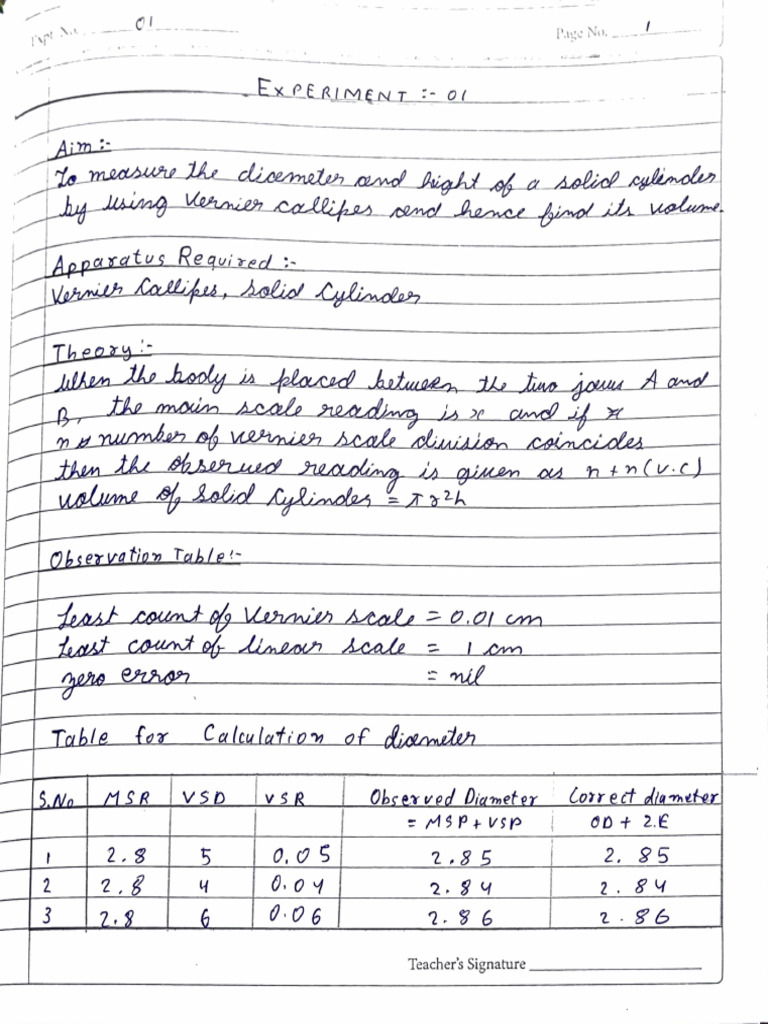 Expt. No. 01
Page No. 1
EXPERIMENT :- 01
Aim :-
To measure the diameter and hight of a solid cylinder
by using Vernier callipes and hence find its volume.
Apparatus Required :-
Vernier Callipes, Solid Cylinder
Theory :-
When the body is placed between the two jaws A and
B, the main scale reading is x and if
n number of vernier scale division coincides
then the observed reading is given as n + n (v.c)
volume of Solid Cylinder = πr²h
Observation Table :-
Least count of Vernier scale = 0.01 cm
Least count of linear scale = 1 cm
zero error = nil
Table for Calculation of diameter
S.No MSR VSD VSR Observed Diameter Correct diameter
= MSP + VSP OD + Z.E
1 2.8 5 0.05 2.85 2.85
2 2.8 4 0.04 2.84 2.84
3 2.8 6 0.06 2.86 2.86
Teacher's Signature